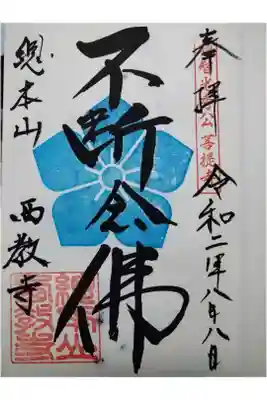 奉拝 令和二年八月八日
明智光秀公菩提寺
不断念佛
総本山 西教寺
総本山西教寺